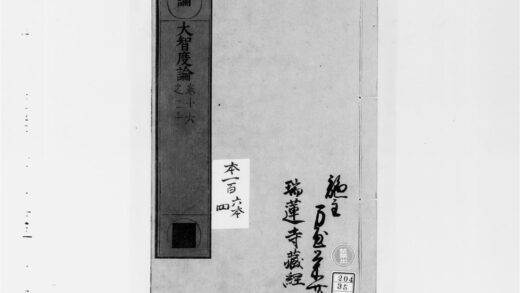 論
大智度論
卷十六
之二十
本一百六本
四
施主
瑞蓮寺藏經
204
35